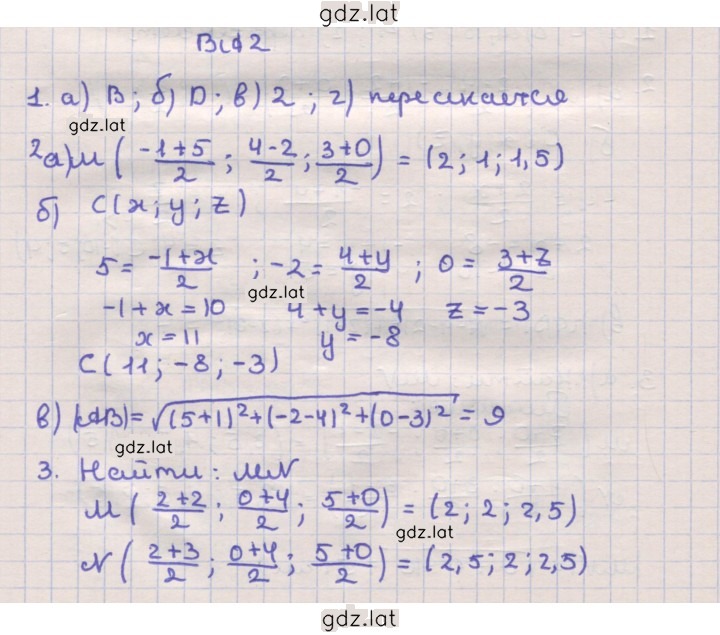 gdz.lat
В[ 2
1. а) В; б) D; в) 2 ; г) пересекается
gdz.lat
2а) M ( (-1+5)/2 ; (4-2)/2 ; (3+0)/2 ) = (2; 1; 1,5)
б) C(x; y; z)
5 = (-1+x)/2 ; -2 = (4+y)/2 ; 0 = (3+z)/2
gdz.lat
-1+x=10 4+y=-4 z=-3
x=11 y=-8
C(11; -8; -3)
в) |AB| = √((5+1)²+(-2-4)²+(0-3)²) = 9
gdz.lat
3. Найти: MN
M ( (2+2)/2 ; (0+4)/2 ; (5+0)/2 ) = (2; 2; 2,5)
gdz.lat
N ( (2+3)/2 ; (0+4)/2 ; (5+0)/2 ) = (2,5; 2; 2,5)
gdz.lat